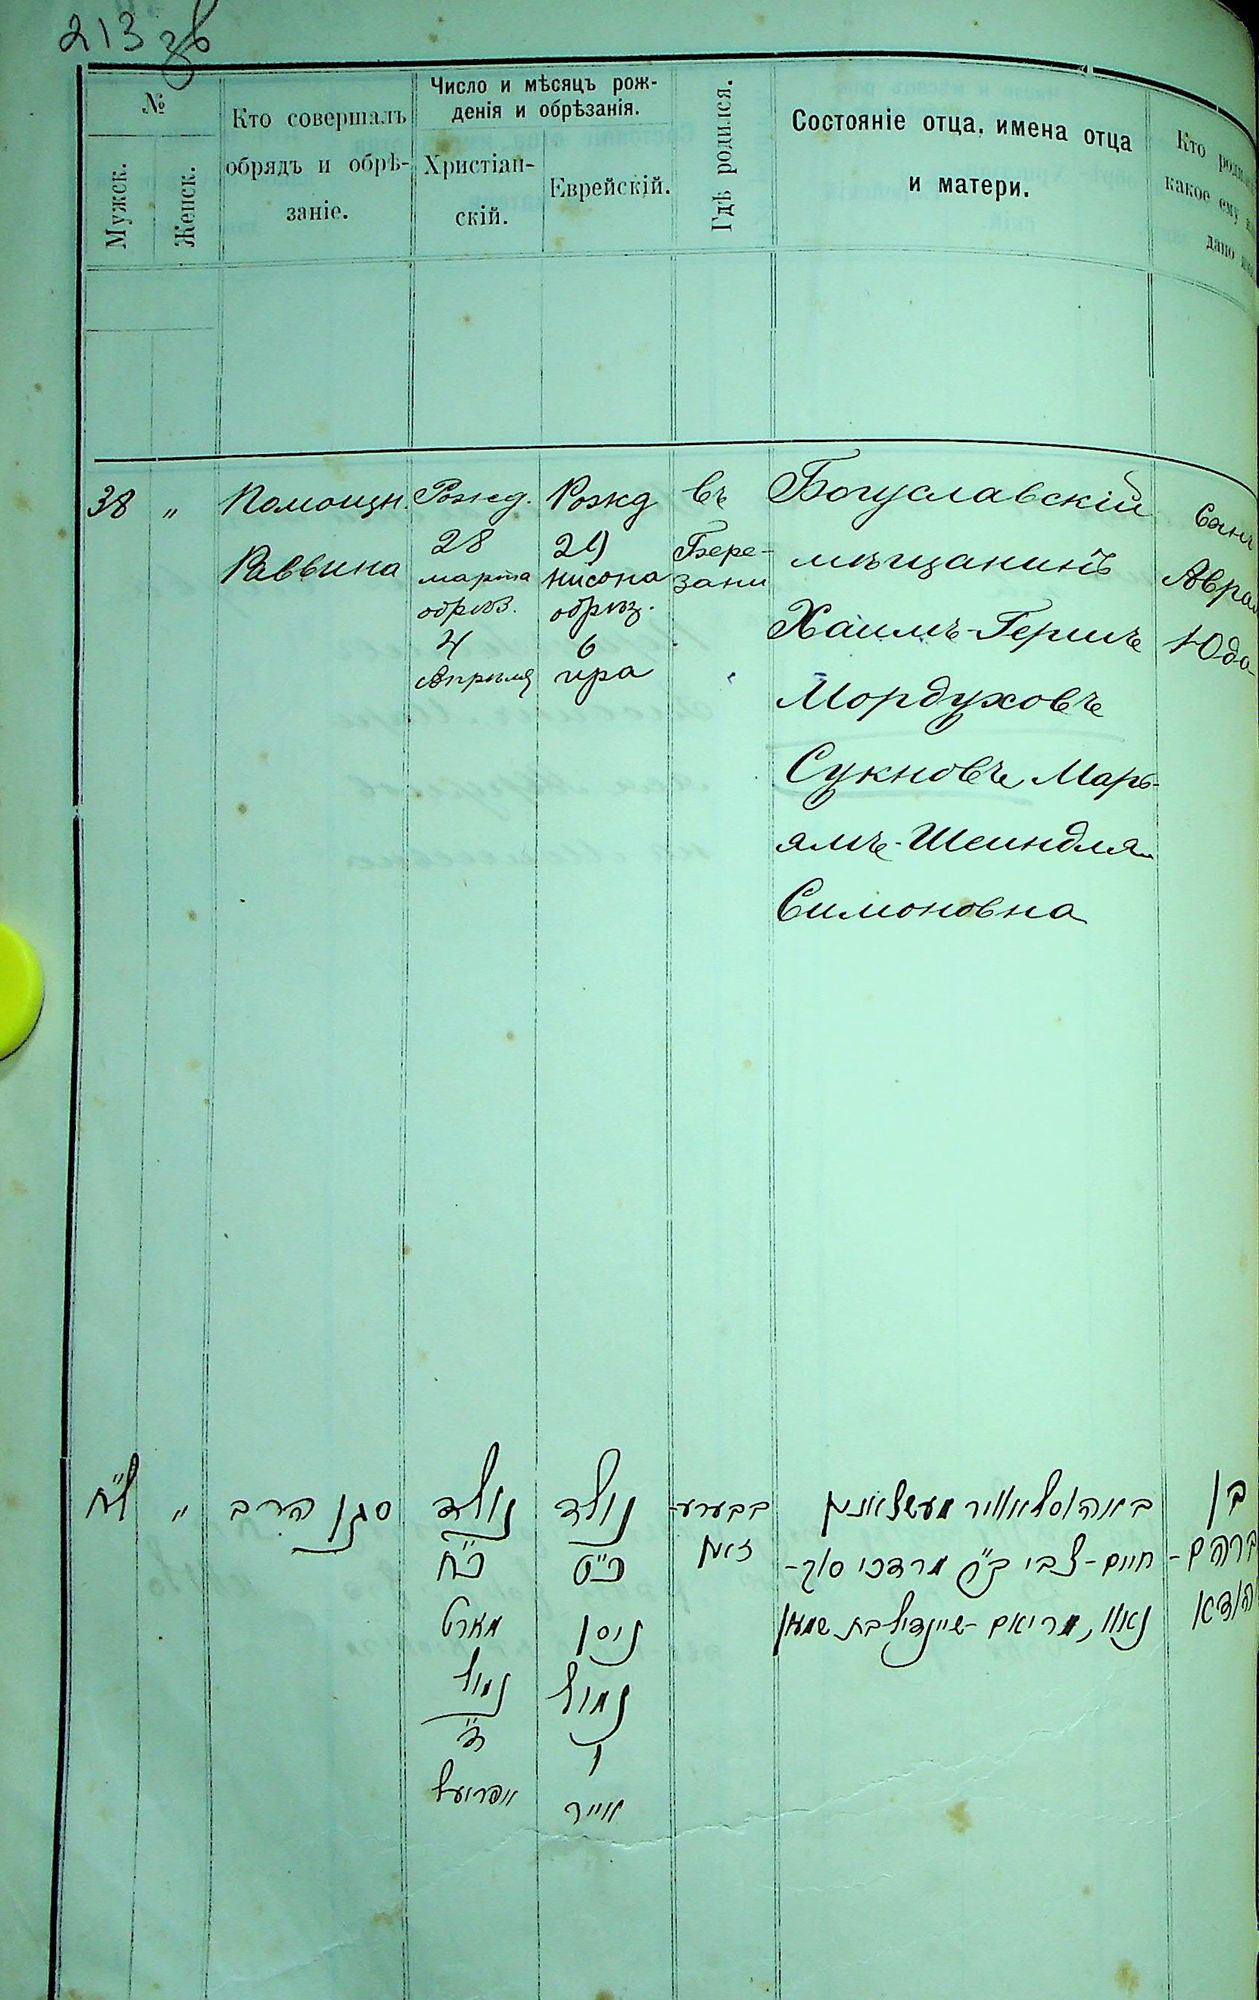 213 зв
№
Мужск.
Женск.
Кто совершалъ
обрядъ и обрѣ-
заніе.
Число и мѣсяцъ рож-
денія и обрѣзанія.
Христіан-
скій.
Еврейскій.
Гдѣ родился.
Состояніе отца, имена отца
и матери.
Кто
какое ему
дано
38
"
Помощн.
Раввина
Рожд.
28
марта
обрѣз.
4
Апрѣля
Рожд
29
нисона
обрѣз.
6
ира
въ
Бере-
зани
Богуславскій
мѣщанинъ
Хаимъ-Гершъ
Мордуховъ
Сукновъ, Марь-
ямъ-Шеиндля
Симоновна
Сынъ
Авра
Юда
ל"ח
"
סגן הרב
נולד
כ"ח
מארט
נמול
ד'
אפריעל
נולד
כ"ט
ניסן
נמול
ו
אייר
בבערע-
זאן
חיים-צבי ב"ר מרדכי סוק-
נאוו, מריאם-שיינדיל בת שמעון
בן
ברהם-
הודא